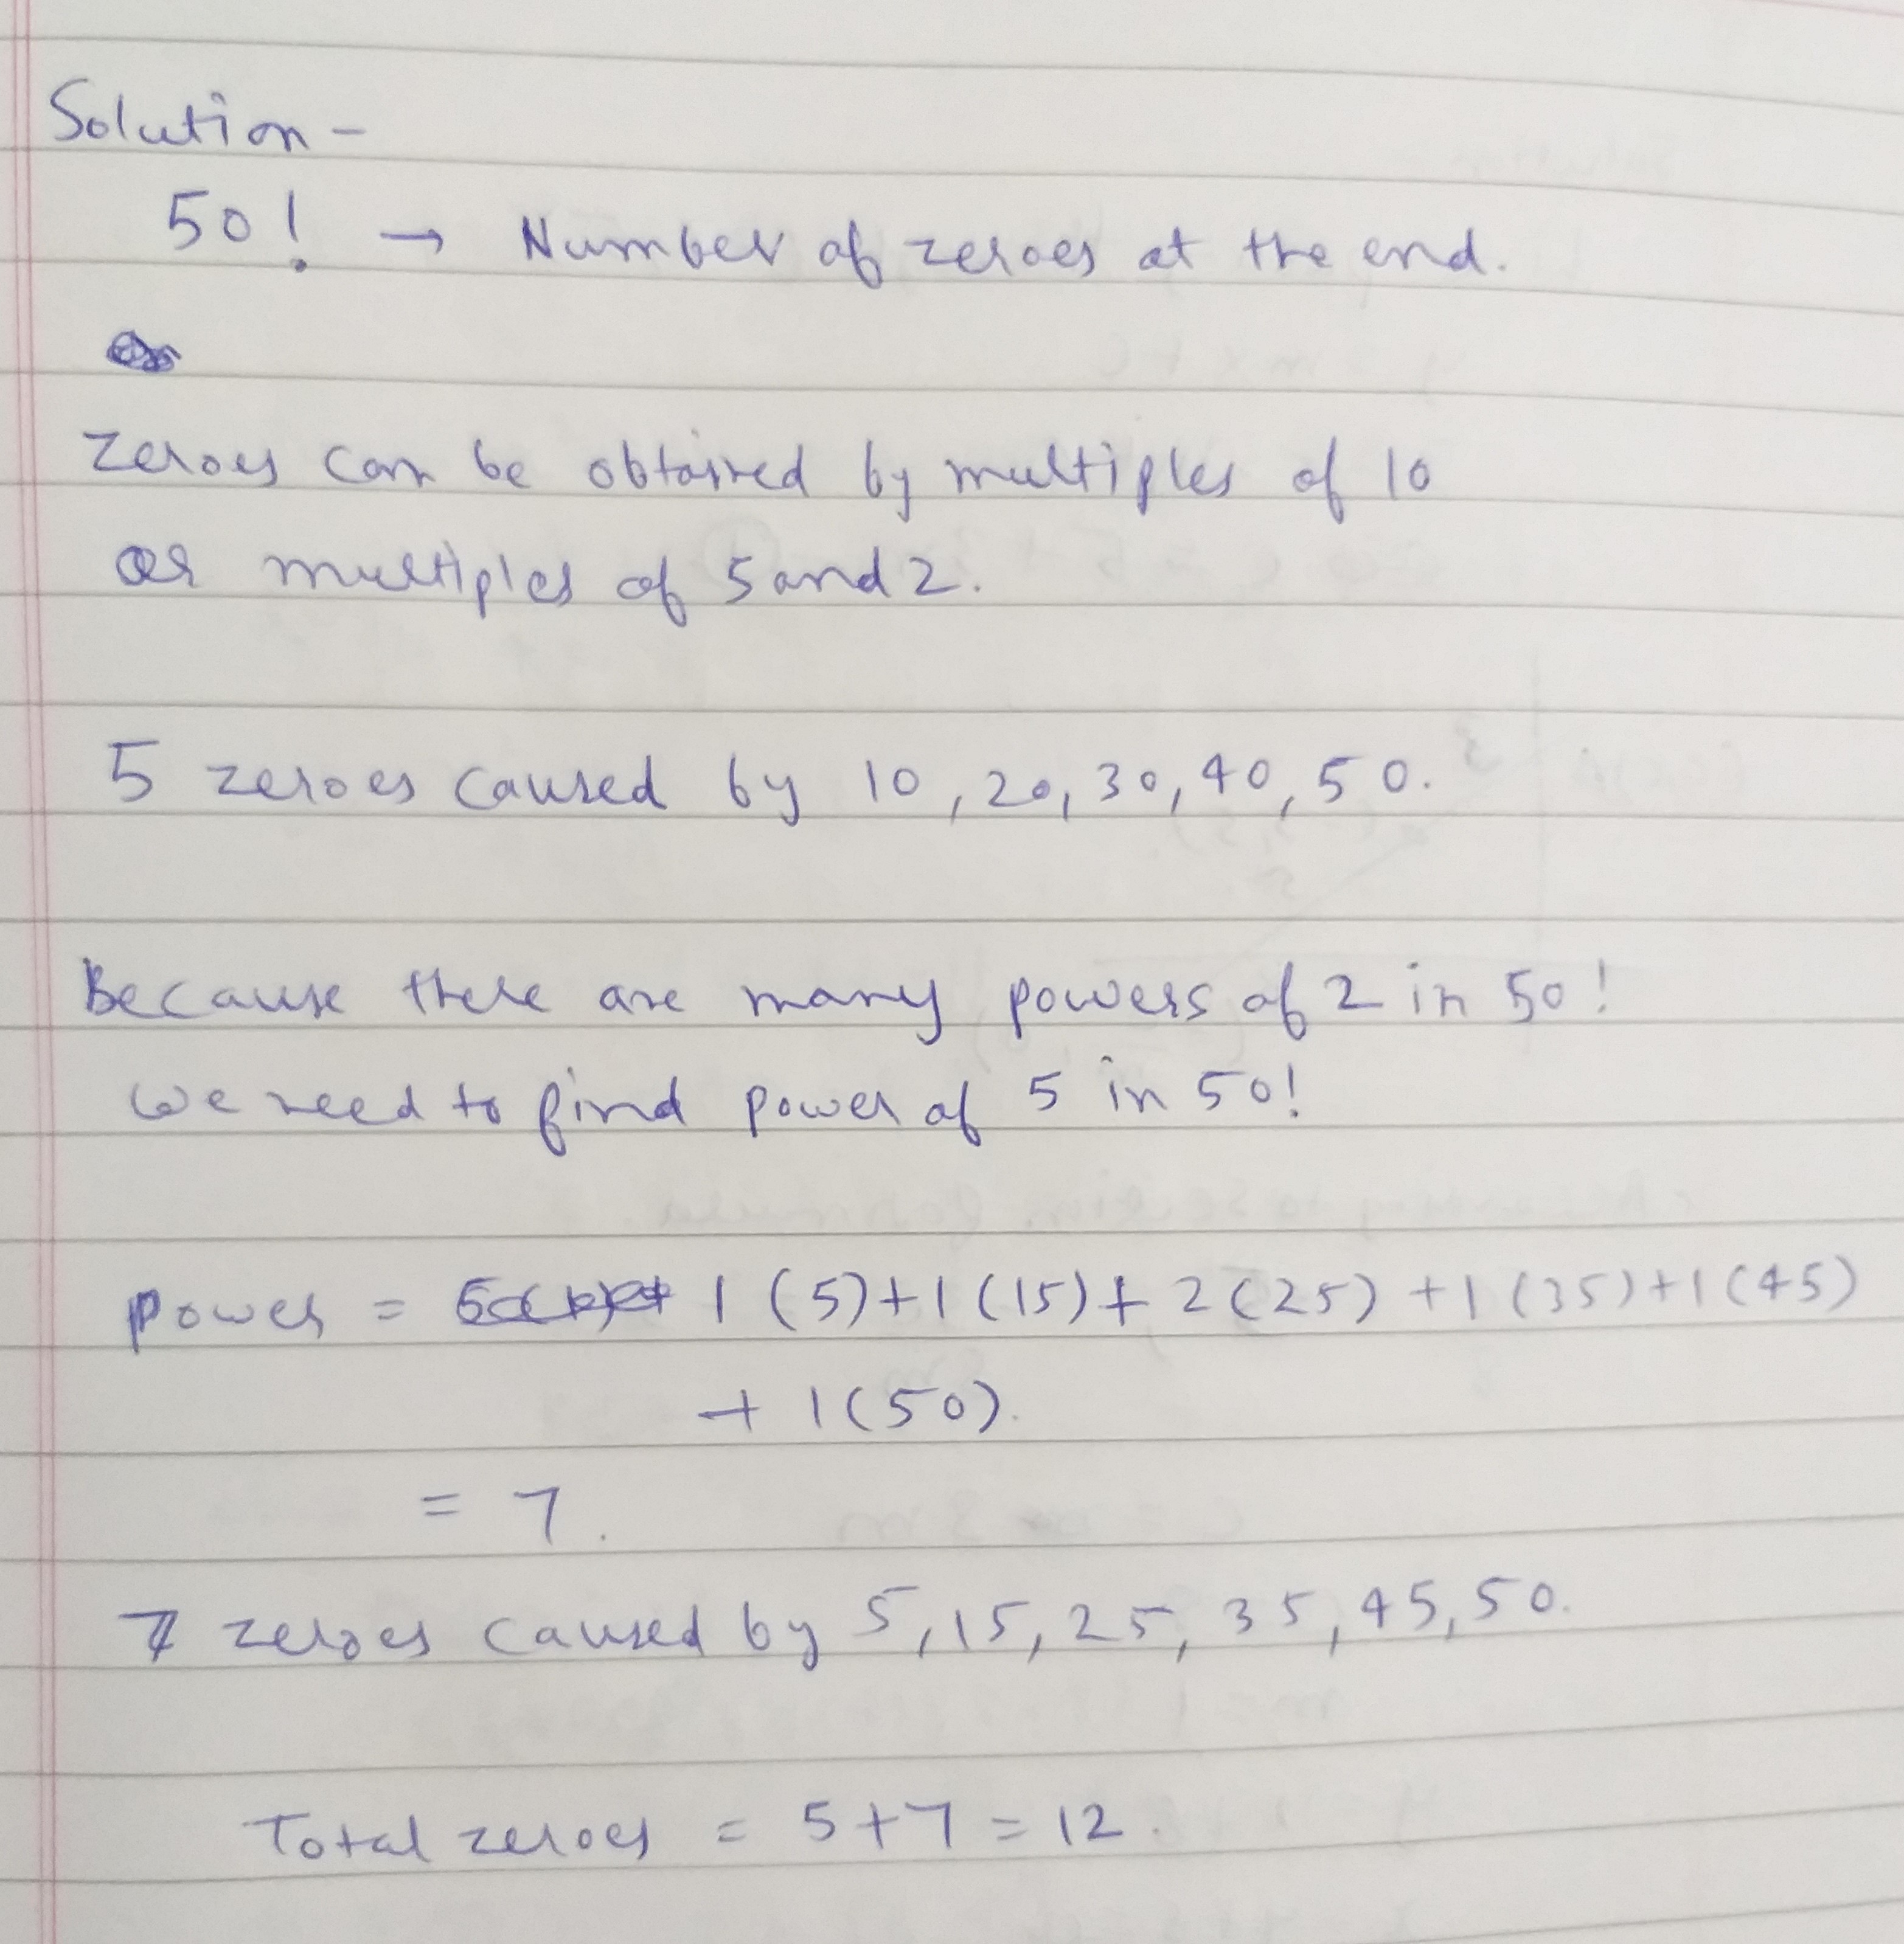 Solution -
50! → Number of zeroes at the end.
Zeroes can be obtained by multiples of 10
or multiples of 5 and 2.
5 zeroes caused by 10, 20, 30, 40, 50.
Because there are many powers of 2 in 50!
we need to find power of 5 in 50!
power = 1 (5) + 1 (15) + 2 (25) + 1 (35) + 1 (45)
+ 1 (50).
= 7.
7 zeroes caused by 5, 15, 25, 35, 45, 50.
Total zeroes = 5 + 7 = 12.